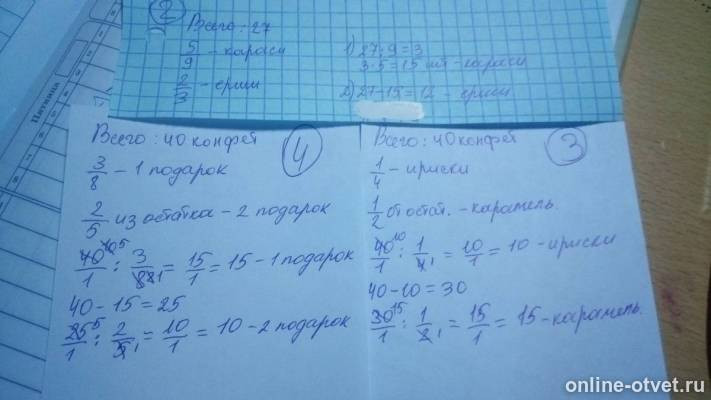 2
Всего: 27
5/9 - караси
2/3 - ерши
1) 27:9=3
3·5=15 шт - караси
2) 27-15=12 - ерши
Пятница
Всего: 40 конфет
4
3/8 - 1 подарок
2/5 из остатка - 2 подарок
40/1 : 3/8 = 15/1 = 15 - 1 подарок
40-15=25
25/1 : 2/5 = 10/1 = 10 - 2 подарок
Всего: 40 конфет
3
1/4 - ириски
1/2 от остат. - карамель.
40/1 : 1/4 = 10/1 = 10 - ириски
40-10=30
30/1 : 1/2 = 15/1 = 15 - карамель.
online-otvet.ru